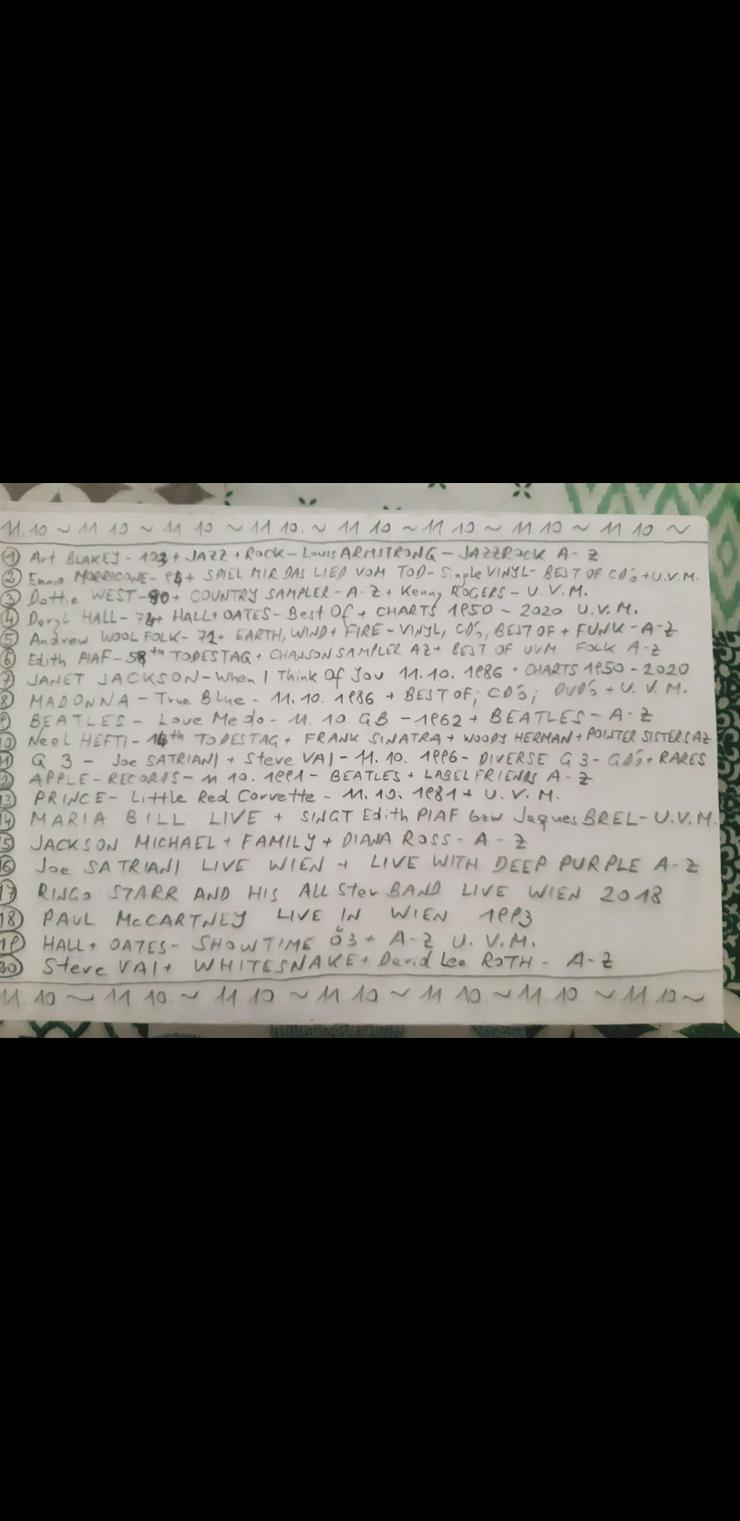 11.10 ~ 11 10 ~ 11 10 ~ 11 10. ~ 11 10 ~ 11 10 ~ 11 10 ~ 11 10 ~
① Art BLAKEY - 103 + JAZZ + ROCK - Louis ARMSTRONG - JAZZROCK A - Z
② Ennio MORRICONE - 94 + SPIEL MIR DAS LIED VOM TOD - Single VINYL - BEST OF CD's + U.V.M.
③ Dottie WEST - 90 + COUNTRY SAMPLER - A - Z + Kenny ROGERS - U.V.M.
④ Daryl HALL - 74 + HALL + OATES - Best Of + CHARTS 1950 - 2020 U.V.M.
⑤ Andrew WOOLFOLK - 72 + EARTH, WIND + FIRE - VINYL, CD's, BEST OF + FUNK - A - Z
⑥ Edith PIAF - 58th TODESTAG + CHANSON SAMPLER AZ + BEST OF UVM FOLK A - Z
⑦ JANET JACKSON - When I Think Of You 11.10.1986 + CHARTS 1950 - 2020
⑧ MADONNA - True Blue - 11.10.1986 + BEST OF; CD's; DVD's + U.V.M.
⑨ BEATLES - Love Me do - 11.10 GB - 1962 + BEATLES - A - Z
10 Neel HEFTI - 14th TODESTAG + FRANK SINATRA + WOODY HERMAN + POINTER SISTERS AZ
11 G 3 - Joe SATRIANI + Steve VAI - 11.10.1996 - DIVERSE G 3 - CD's + RARES
12 APPLE - RECORDS - 11 10.1991 - BEATLES + LABELFRIENDS A - Z
13 PRINCE - Little Red Corvette - 11.10.1981 + U.V.M.
14 MARIA BILL LIVE + SINGT Edith PIAF bzw Jaques BREL - U.V.M.
15 JACKSON MICHAEL + FAMILY + DIANA ROSS - A - Z
16 Joe SATRIANI LIVE WIEN + LIVE WITH DEEP PURPLE A - Z
17 RINGO STARR AND HIS ALL Star BAND LIVE WIEN 2018
18 PAUL McCARTNEY LIVE IN WIEN 1993
19 HALL + OATES - SHOWTIME Ö3 + A - Z U.V.M.
20 Steve VAI + WHITESNAKE + David Lee ROTH - A - Z
11.10 ~ 11.10. ~ 11 10 ~ 11 10 ~ 11 10 ~ 11 10 ~ 11.10 ~